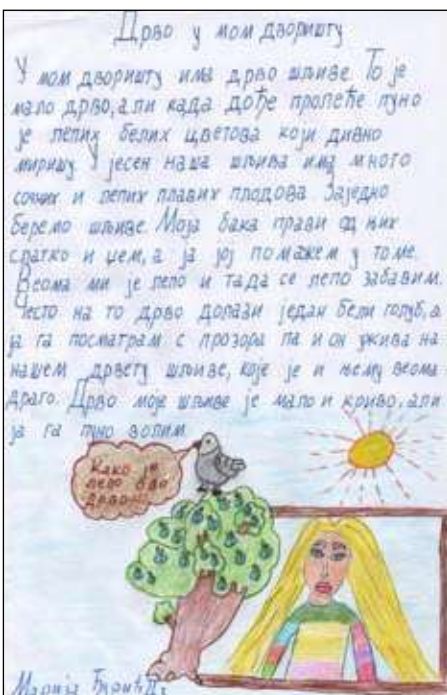 Дрво у мом дворишту
У мом дворишту има дрво шљиве. То је
мало дрво, али када дође пролеће пуно
је лепих белих цветова који дивно
миришу. У јесен наша шљива има много
сочних и лепих плавих плодова. Заједно
беремо шљиве. Моја бака прави од њих
слатко и џем, а ја јој помажем у томе.
Веома ми је лепо и тада се лепо забавим.
Често на то дрво долази један бели голуб, а
ја га посматрам с прозора па и он ужива на
нашем дрвету шљиве, које је и њему веома
драго. Дрво моје шљиве је мало и криво, али
ја га пуно волим.
Како је
лепо ово
дрво!!!
Марија